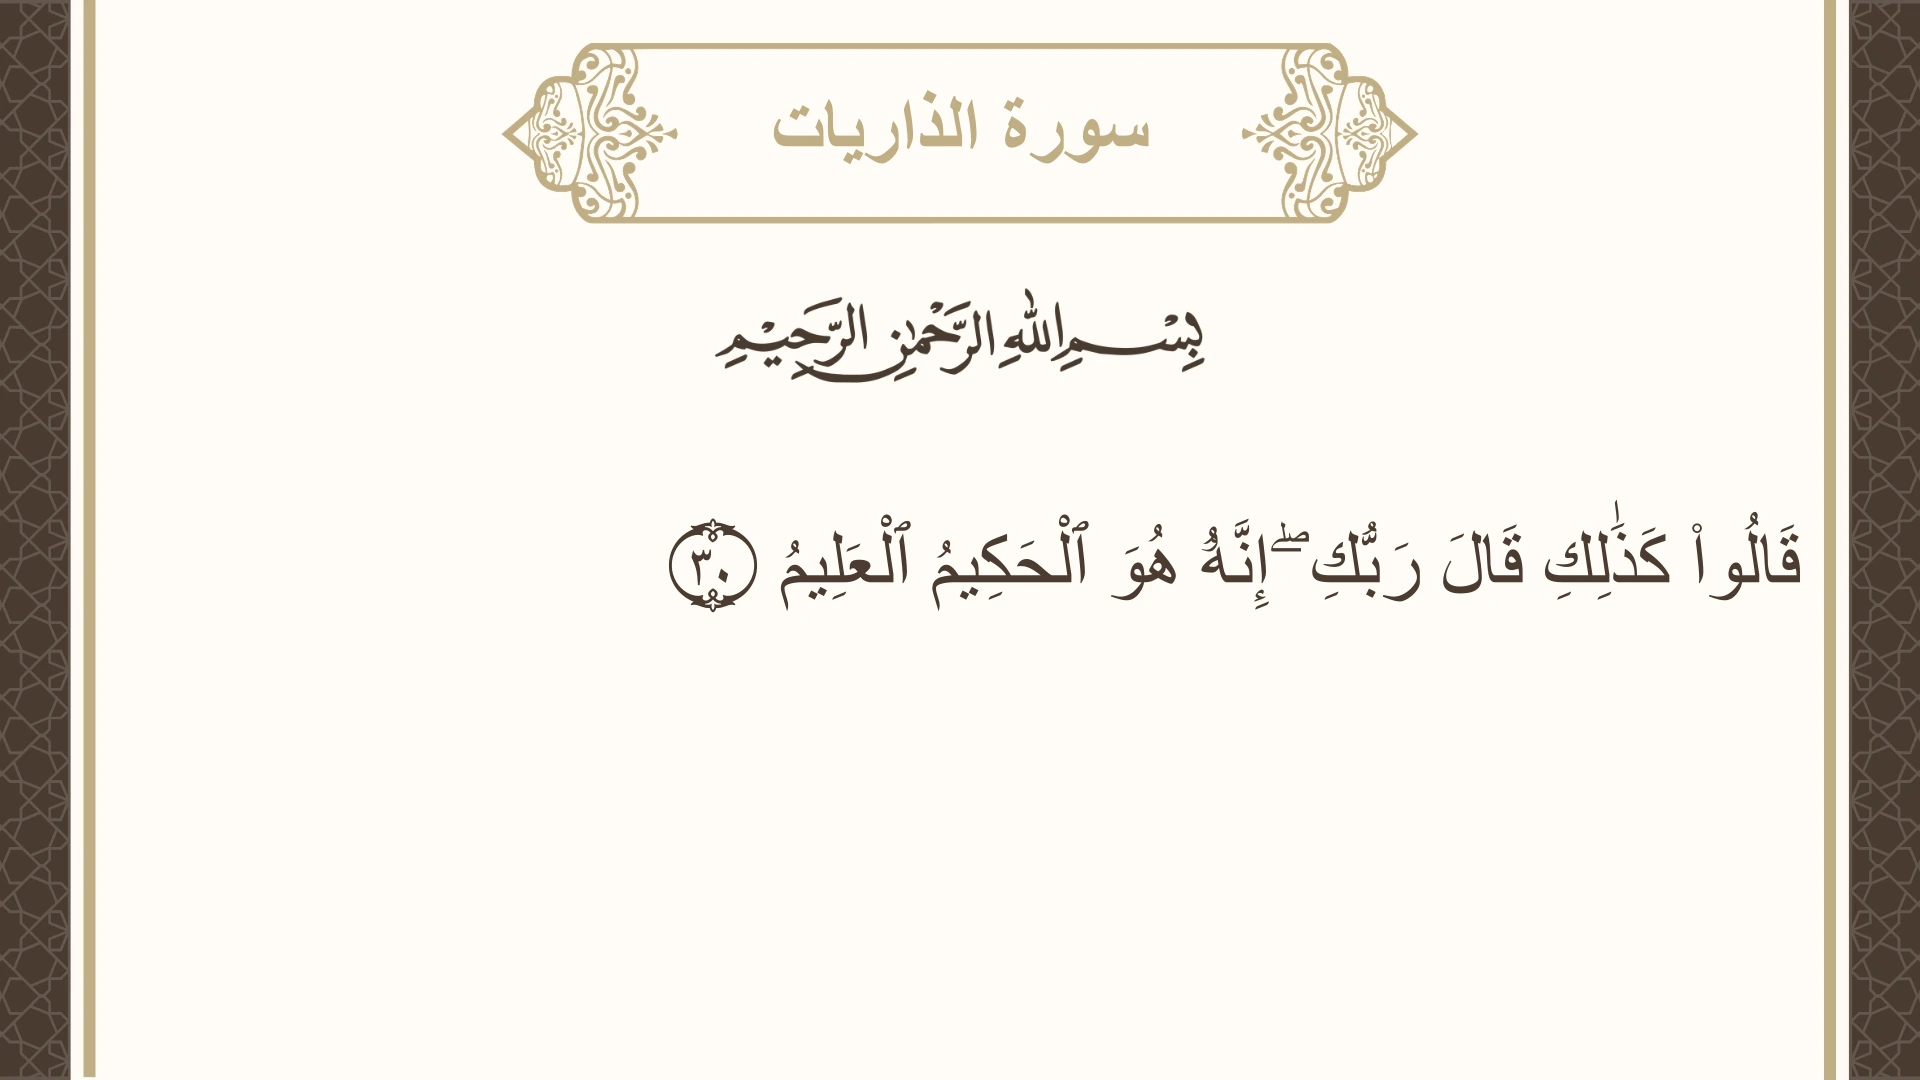 سورة الذاريات
بِسْمِ اللهِ الرَّحْمٰنِ الرَّحِيْمِ
قَالُواْ كَذَٰلِكِ قَالَ رَبُّكِ ۖ إِنَّهُۥ هُوَ ٱلْحَكِيمُ ٱلْعَلِيمُ ٣٠